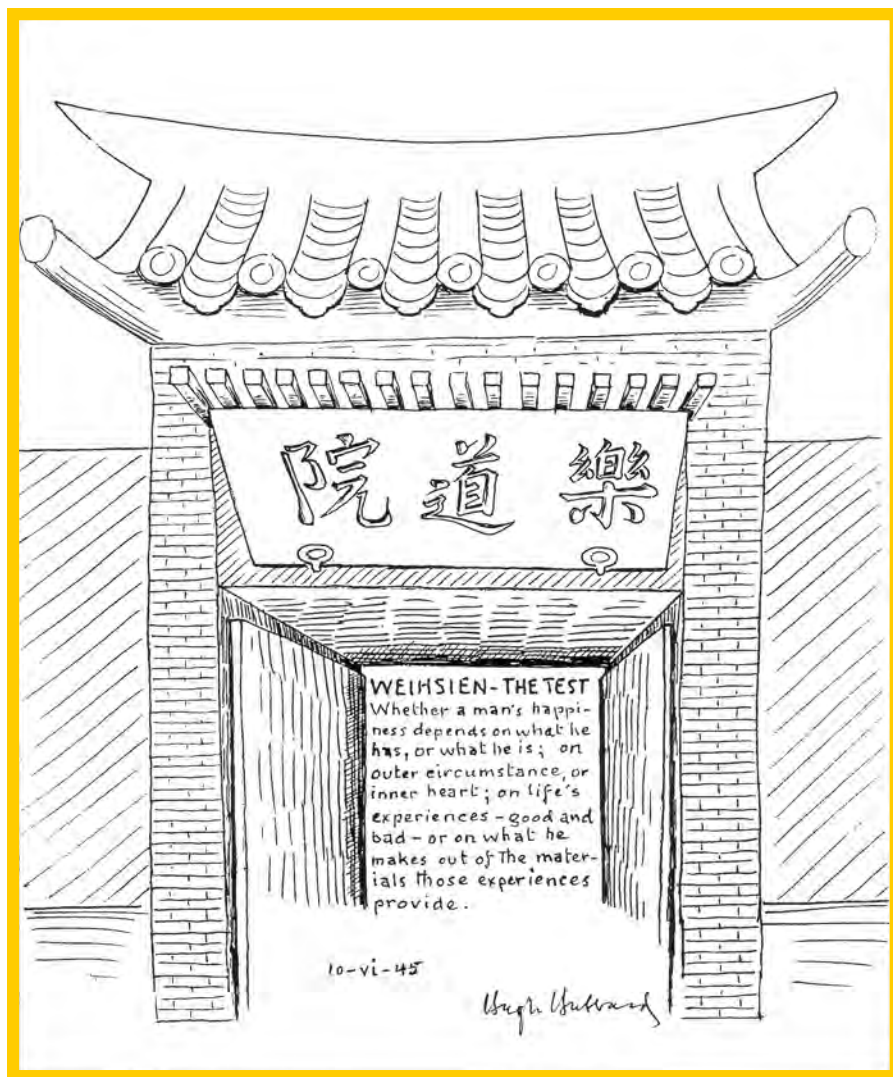 樂道院
WEIHSIEN - THE TEST
Whether a man's happi-
ness depends on what he
has, or what he is; on
outer circumstance, or
inner heart; on life's
experiences - good and
bad - or on what he
makes out of The mater-
ials those experiences
provide.
10-vi-45
Hugh Hubbard